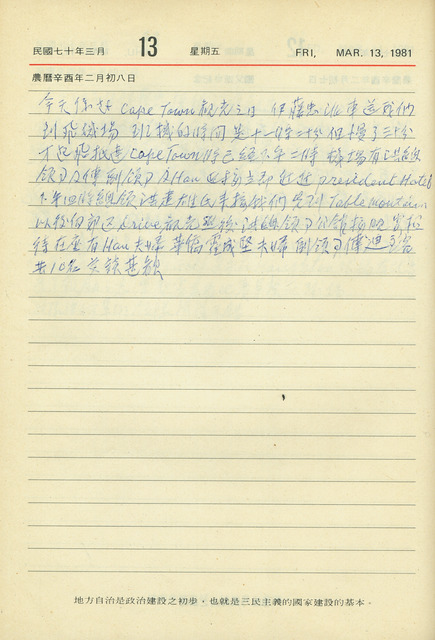 民國七十年三月 13 星期五 FRI, MAR. 13, 1981
農曆辛酉年二月初八日
今天係赴 Cape Town 觀光之日 伊藤忠派車送我們
到飛機場 班機的時間是十一時二十分但擋了三十分
才起飛抵達 Cape Town 時已經下午二時 機場有洪總
領事及傅副領事及Han 立即 president Hotel
下午四時總領 建雄氏來接我們先到 Table mountain
以後 drive 觀光 洪總領事 招
待在座有 Han 夫婦 華僑霍成堅夫婦 副領事傅迪
共10名 交談甚歡
地方自治是政治建設之初步，也就是三民主義的國家建設的基本。